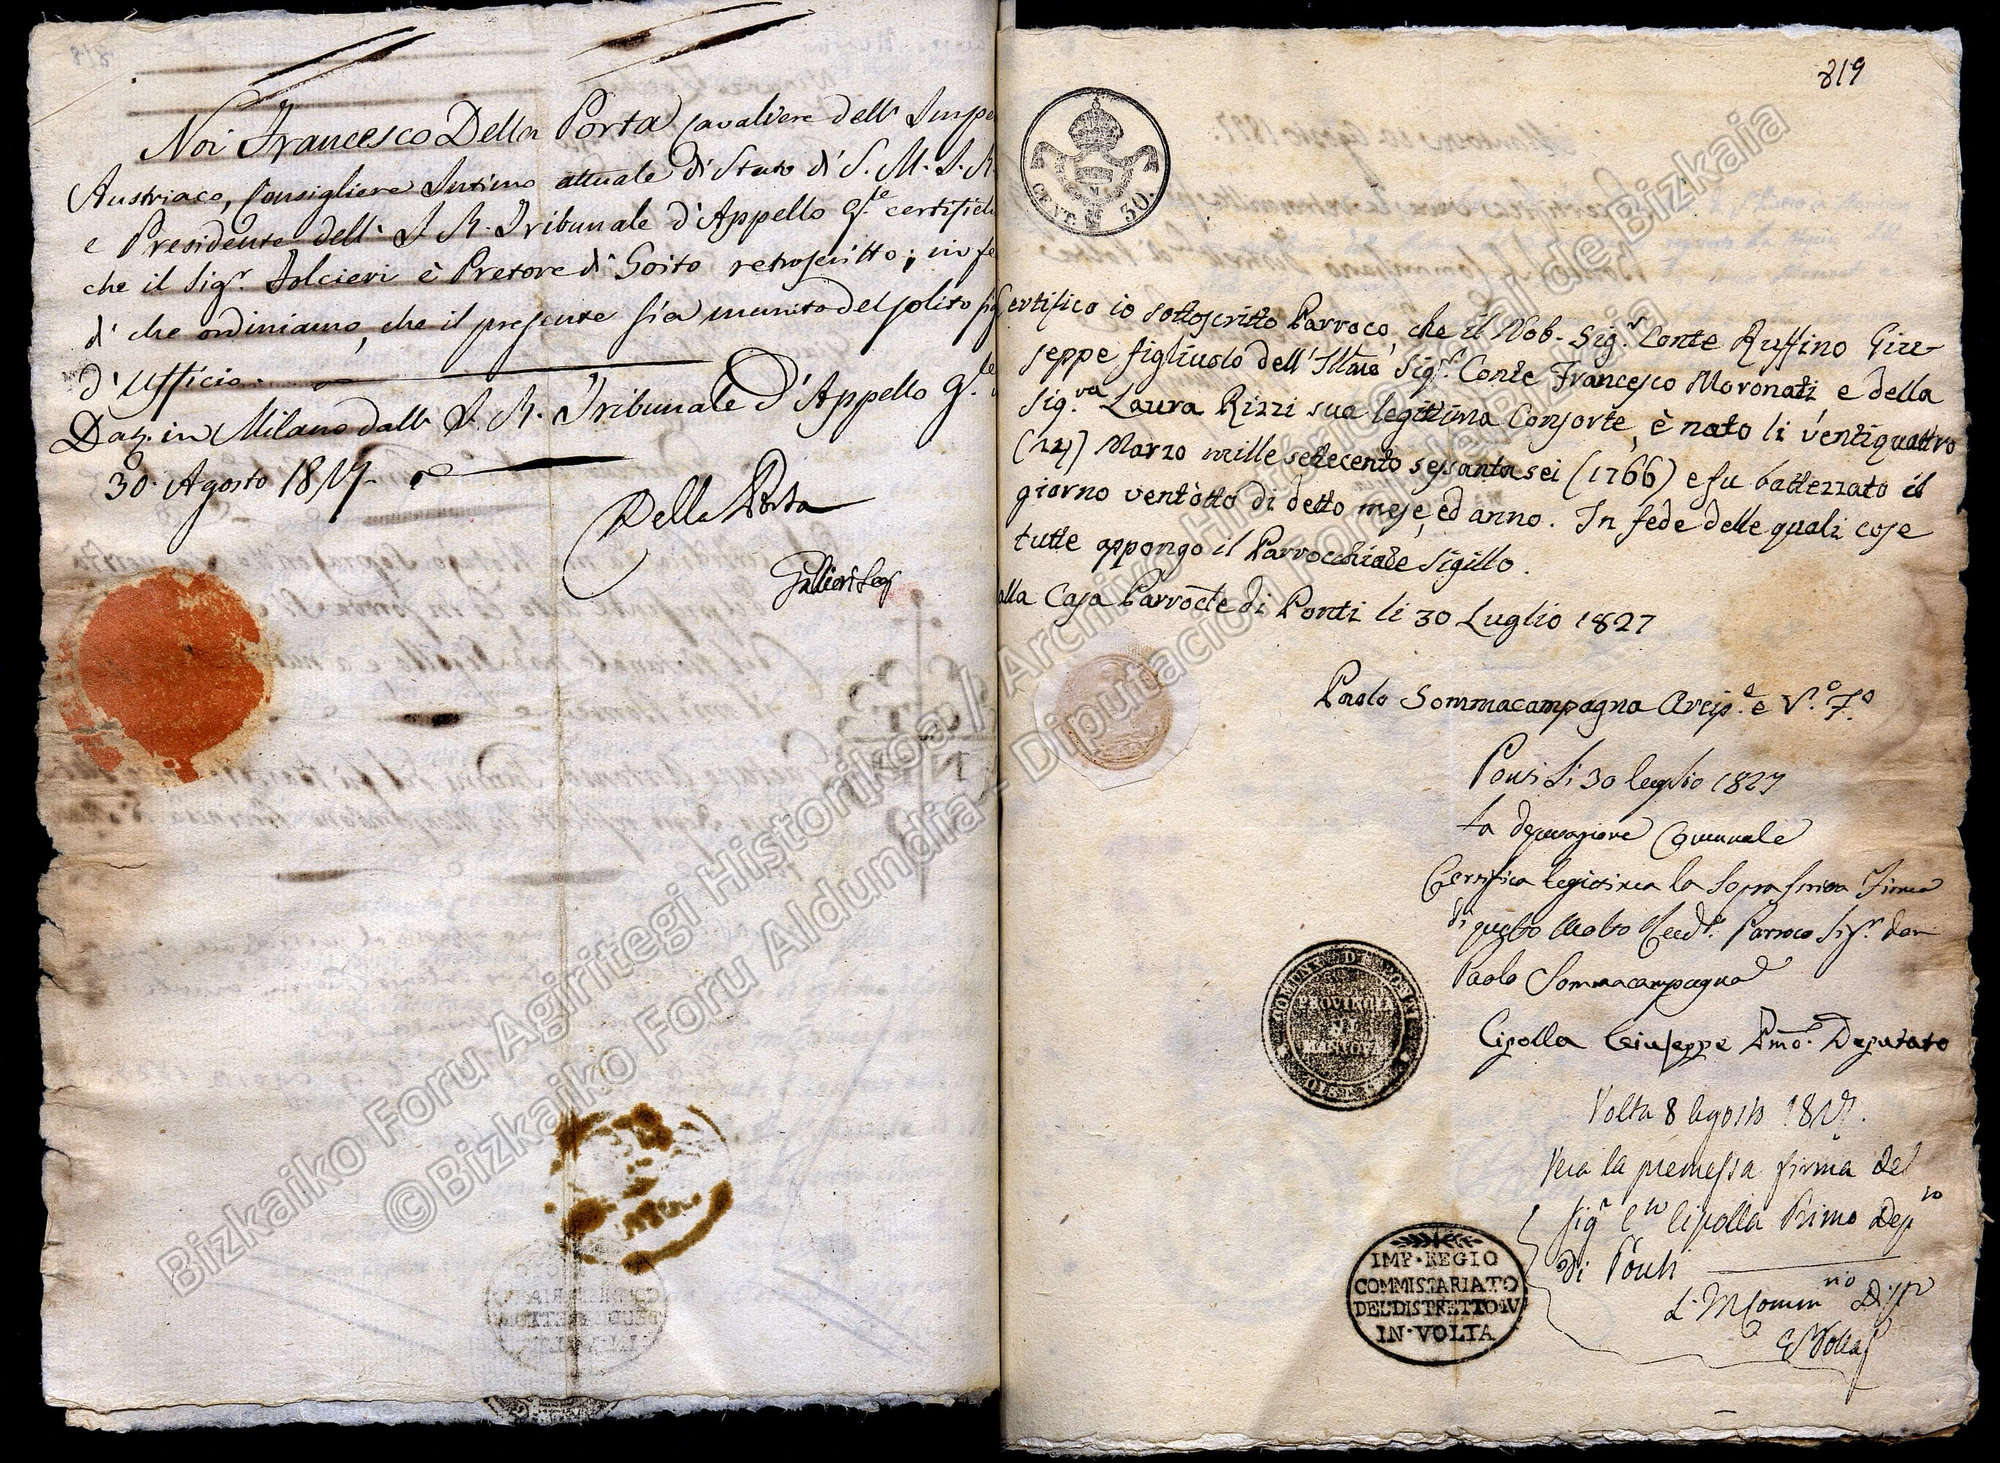 Noi Francesco Della Porta Cavaliere dell' Impe
Austriaco, Consigliere Intimo attuale di Stato di S. M. I. R.
e Presidente dell' I. R. Tribunale d'Appello G.le certifich
che il Sig.r Folcieri è Pretore di Goito retroscritto; in fe
di che ordiniamo, che il presente sia munito del solito sig
d'Ufficio.
Dat. in Milano dall' I. R. Tribunale d'Appello G.le
30. Agosto 1827.
Della Porta
819
CENT. 30.
ertifico io sottoscritto Parroco, che il Nob. Sig.r Conte Ruffino Giu-
seppe figliuolo dell' Illmo Sig.r Conte Francesco Moronati e della
Sig.va Laura Rizzi sua legittima Consorte, è nato li ventiquattro
(24) Marzo mille settecento sessanta sei (1766) e fu battezzato il
giorno ventotto di detto mese, ed anno. In fede delle quali cose
tutte appongo il Parrocchiale Sigillo.
alla Casa Parrocle di Ponti li 30 Luglio 1827
Paolo Sommacampagna Arcip.e e V.o F.o
Ponti li 30 luglio 1827
La deputazione Comunale
Certifica legitima la sopra scritta Firma
di questo Molto Revd.o Parroco Sig.r don
Paolo Sommacampagna
Cipolla Giuseppe Pmo. Deputato
PROVINCIA
DI
MANTOVA
Volta 8 Agosto 1827.
Vera la premessa firma del
Sig.r Cipolla Primo Dep.to
di Ponti
IMP. REGIO
COMMISSARIATO
DEL DISTRETTO IV
IN VOLTA
Bizkaiko Foru Agiritegi Historikoa / Archivo Histórico Foral de Bizkaia
©Bizkaiko Foru Aldundia - Diputación Foral de Bizkaia